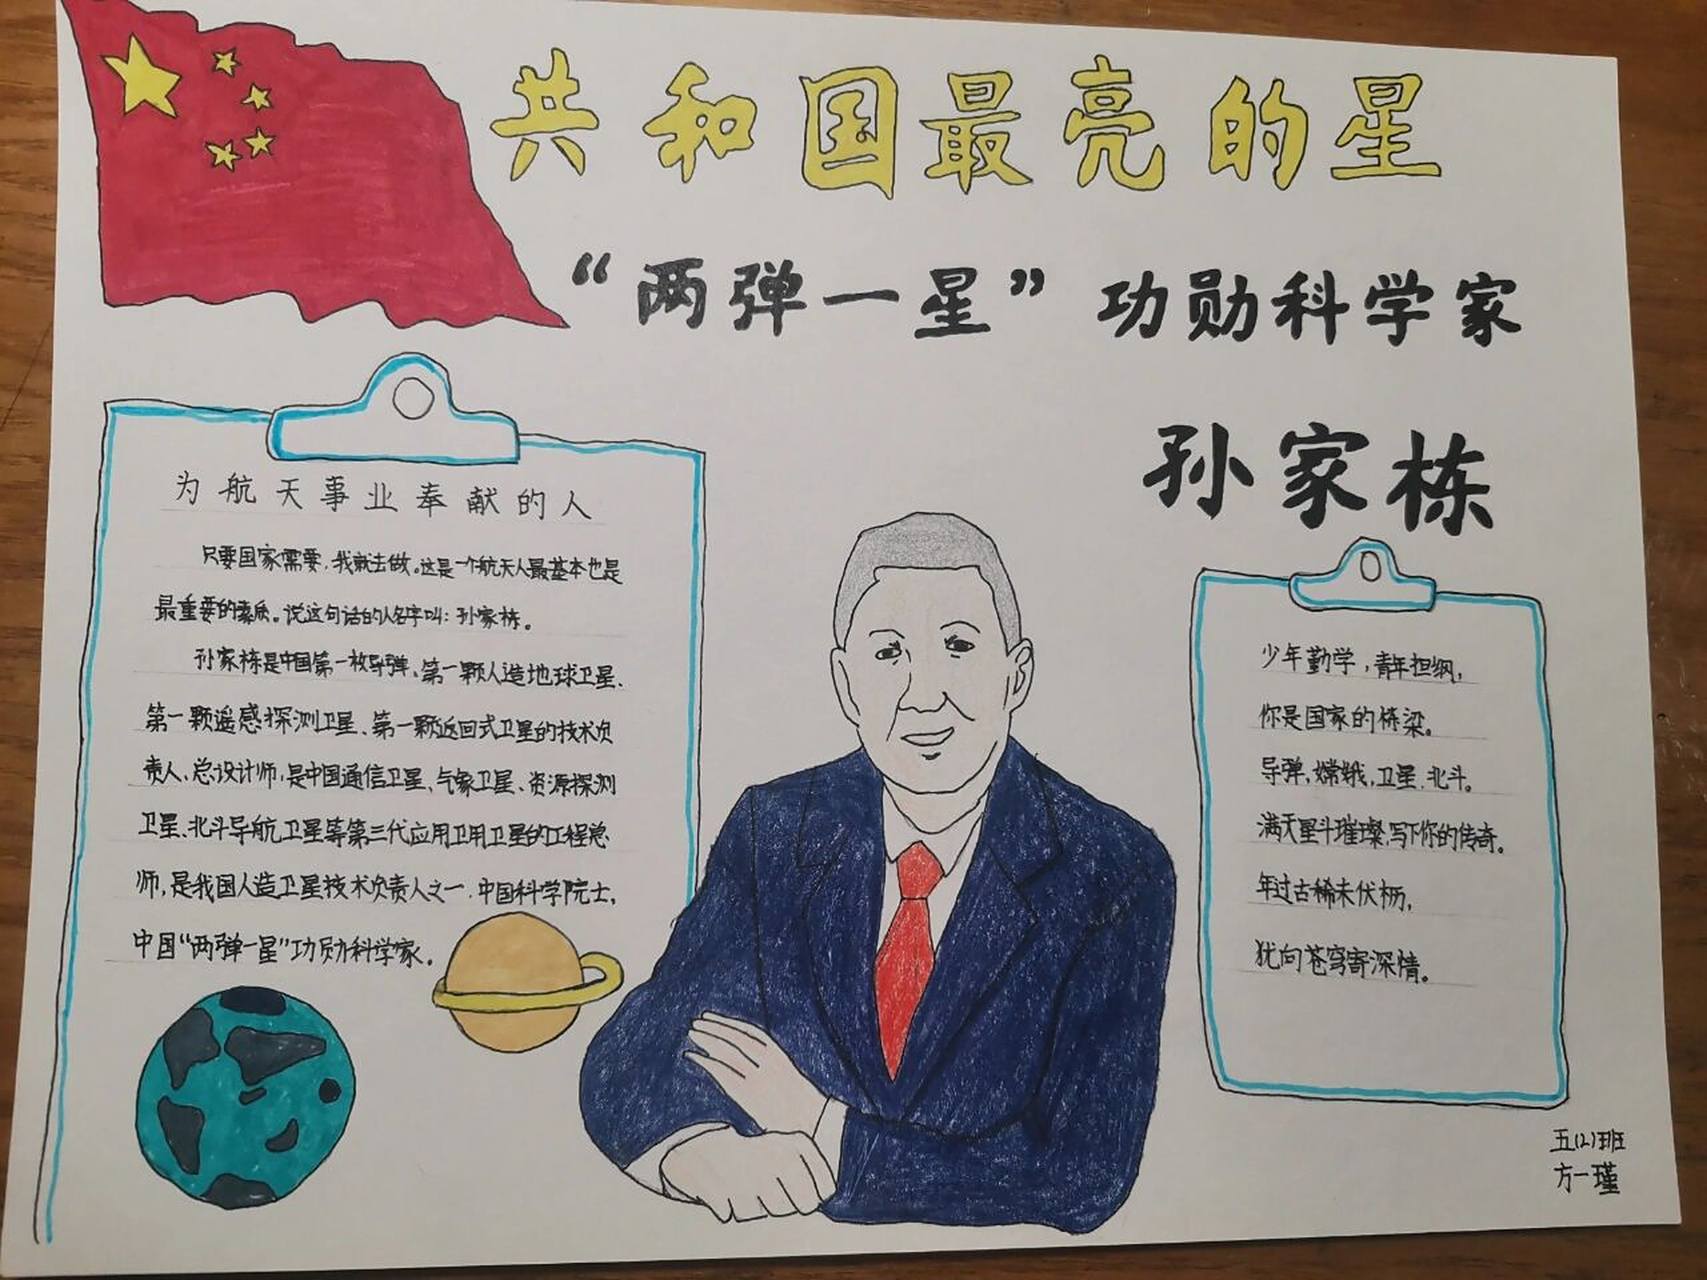 共和国最亮的星
“两弹一星”功勋科学家
孙家栋
为航天事业奉献的人
只要国家需要,我就去做。这是一个航天人最基本也是
最重要的素质。说这句话的人名字叫:孙家栋。
孙家栋是中国第一枚导弹、第一颗人造地球卫星、
第一颗遥感探测卫星、第一颗返回式卫星的技术负
责人、总设计师,是中国通信卫星、气象卫星、资源探测
卫星、北斗导航卫星等第三代应用卫用卫星的工程总
师,是我国人造卫星技术负责人之一.中国科学院士,
中国“两弹一星”功勋科学家。
少年勤学,青年担纲,
你是国家的栋梁。
导弹,嫦娥,卫星.北斗。
满天星斗璀璨,写下你的传奇。
年过古稀未伏枥,
犹向苍穹寄深情。
五(2)班
方一瑾